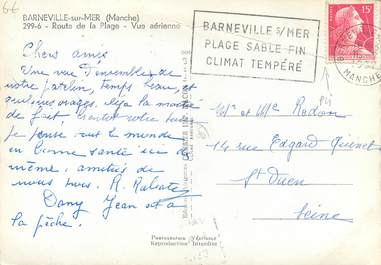 BARNEVILLE-sur-MER (Manche)
299-6 - Route de la Plage - Vue aérienne
BARNEVILLE S/MER
PLAGE SABLE FIN
CLIMAT TEMPÉRÉ
15F
MANCHE
Chers amis
Une vue d'ensemble de
notre patelin, temps beau, et
quelques orages. déjà la moitié
de fait.
je pense tout le monde
en bonne santé ici de
même, amitiés de
nous tous. R.
Dany Jean est à
la pêche.
Mr et Me Rodon
14 rue Edgard Quinet
St Ouen
Seine
Reproduction Interdite